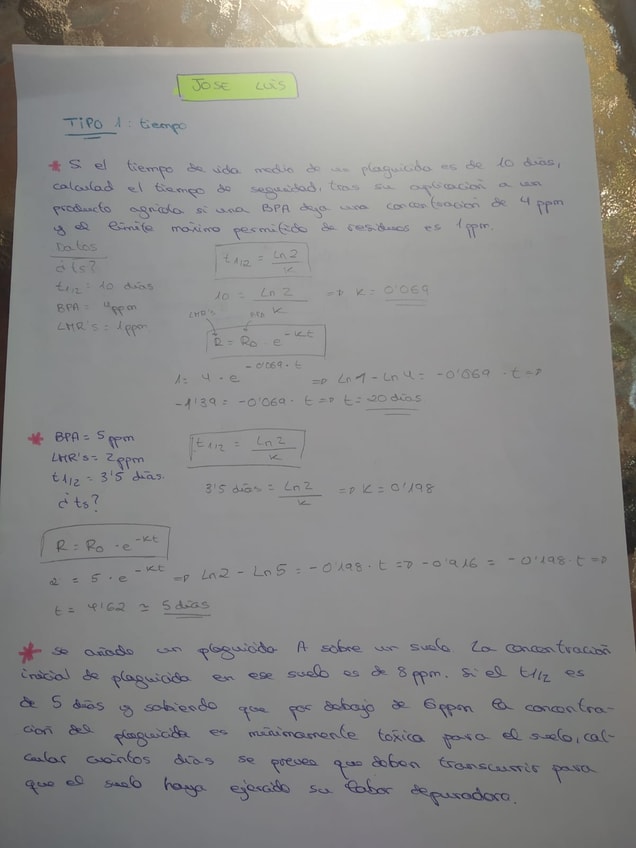 JOSE LUIS
TIPO 1: tiempo
* Si el tiempo de vida medio de un plaguicida es de 10 días,
calculad el tiempo de seguridad, tras su aplicación a un
producto agrícola si una BPA deja una concentración de 4 ppm
y el límite máximo permitido de residuos es 1 ppm.
Datos
¿ts?
t1/2 = 10 días
BPA = 4ppm
LMR's = 1ppm
t1/2 = Ln2/K
10 = Ln2/K => K = 0'069
LMR's BPA
R = R0 · e^-Kt
1 = 4 · e^-0'069·t => Ln1 - Ln4 = -0'069 · t =>
-1'39 = -0'069 · t => t = 20 días
* BPA = 5ppm
LMR's = 2ppm
t1/2 = 3'5 días.
¿ts?
t1/2 = Ln2/K
3'5 días = Ln2/K => K = 0'198
R = R0 · e^-Kt
2 = 5 · e^-Kt => Ln2 - Ln5 = -0'198 · t => -0'916 = -0'198 · t =>
t = 4'62 ≃ 5 días
* Se añade un plaguicida A sobre un suelo. La concentración
inicial de plaguicida en ese suelo es de 8 ppm. Si el t1/2 es
de 5 días y sabiendo que por debajo de 6ppm la concentra-
ción del plaguicida es mínimamente tóxica para el suelo, cal-
cular cuántos días se prevee que deben transcurrir para
que el suelo haya ejercido su labor depuradora.